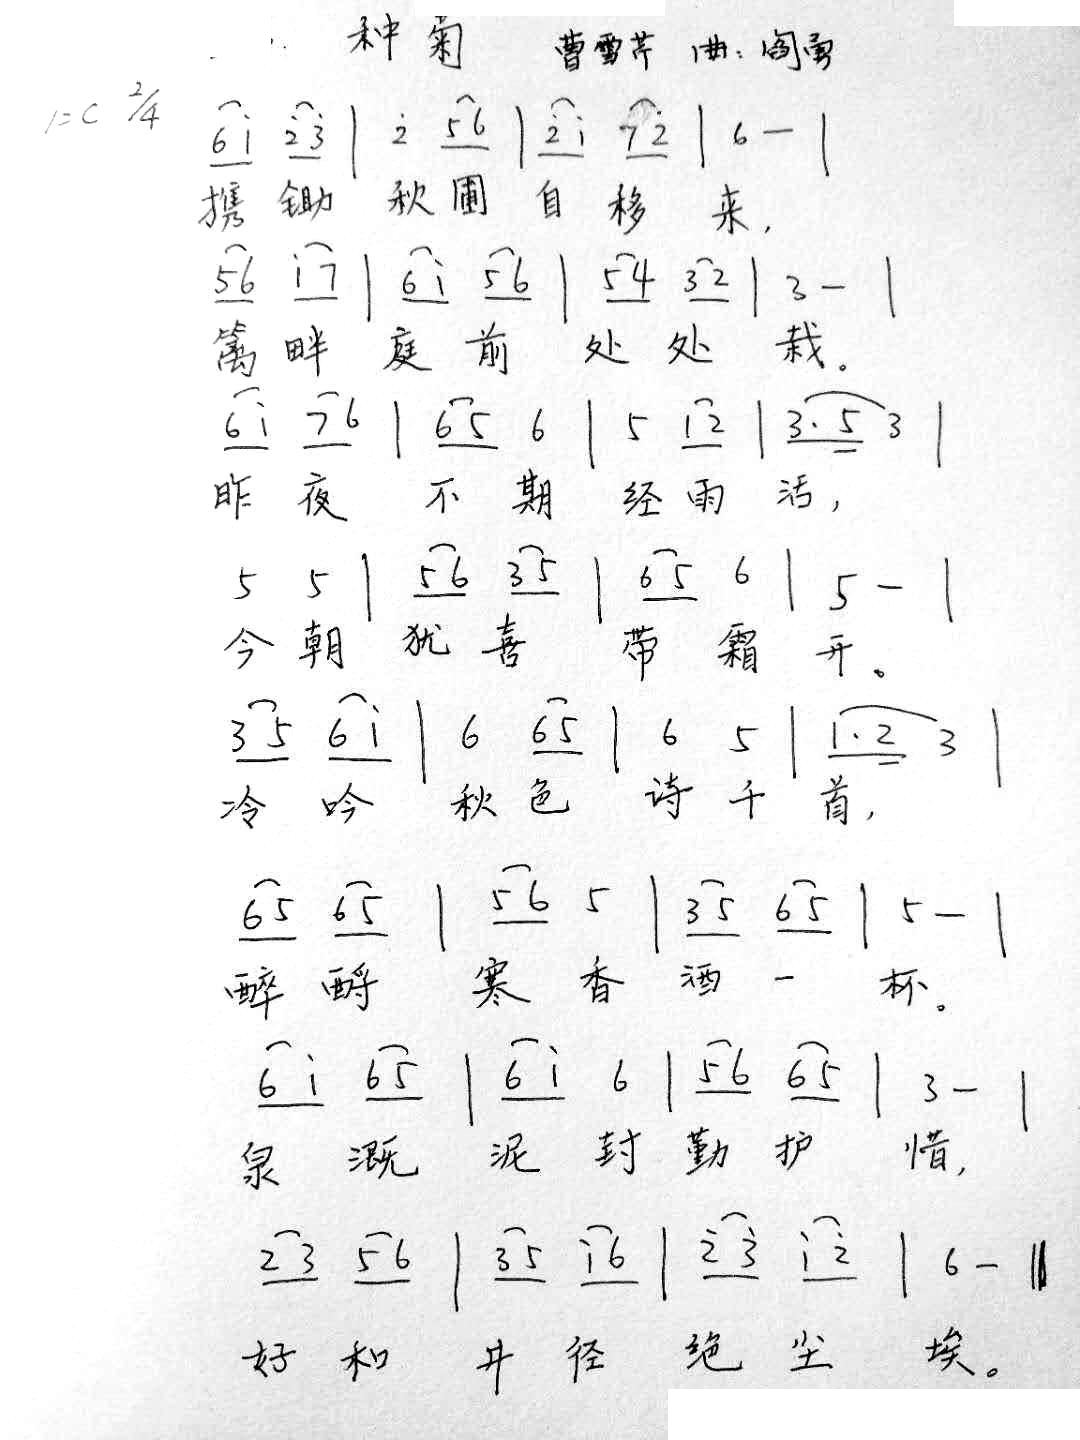 种菊 曹雪芹 曲：阎勇
1=C 2/4
6i 2̇3̇ | 2̇ 56 | 2̇i 72̇ | 6 — |
携锄秋圃自移来，
56 i7 | 6i 56 | 54 32 | 3 — |
篱畔庭前处处栽。
6i 76 | 65 6 | 5 12 | 3·5 3 |
昨夜不期经雨活，
5 5 | 56 35 | 65 6 | 5 — |
今朝犹喜带霜开。
35 6i | 6 65 | 6 5 | 1·2 3 |
冷吟秋色诗千首，
65 65 | 56 5 | 35 65 | 5 — |
醉酹寒香酒一杯。
6i 65 | 6i 6 | 56 65 | 3 — |
泉溉泥封勤护惜，
23 56 | 35 i6 | 2̇3̇ i2̇ | 6 — ‖
好和井径绝尘埃。